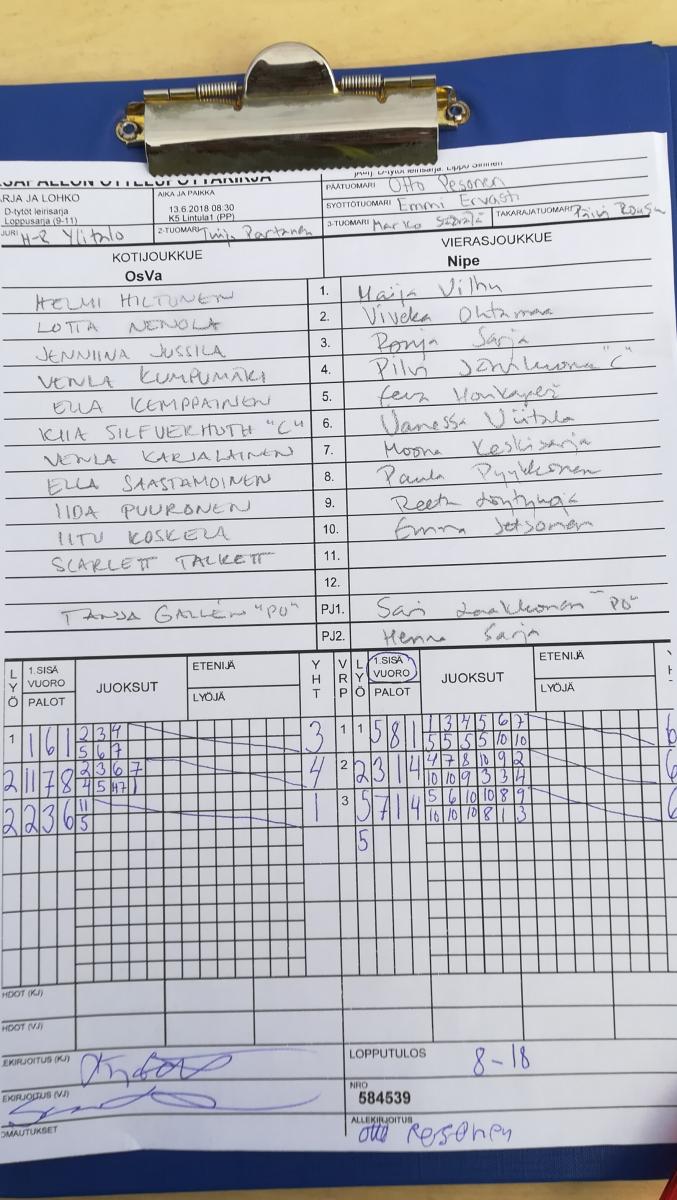 D-tytöt leirisarja. Lippo Sininen
ARJA JA LOHKO
D-tytöt leirisarja
Loppusarja (9-11)
AIKA JA PAIKKA
13.6.2018 08:30
K5 Lintula1 (PP)
PÄÄTUOMARI Otto Pesonen
SYÖTTÖTUOMARI Emmi Ervasti
JURI H-R Ylitalo
2-TUOMARI Tuija Partanen
3-TUOMARI Marko
TAKARAJATUOMARI Päivi
KOTIJOUKKUE
OsVa
VIERASJOUKKUE
Nipe
HELMI HILTUNEN 1. Maija Vilhu
LOTTA NENOLA 2. Viveka Ohtamaa
JENNIINA JUSSILA 3. Ronja Sarja
VENLA KUMPUMÄKI 4. Pilvi "C"
ELLA KEMPPAINEN 5. Honkaperä
KIIA SILFVERHUTH "C" 6. Vanessa Viitala
VENLA KARJALAINEN 7. Moona Keskisarja
ELLA SAASTAMOINEN 8. Paula Pyykkönen
IIDA PUURONEN 9. Reeta Löytynoja
IITU KOSKELA 10. Emma
SCARLETT TALKETT 11.
12.
TANJA GALLÉN "PO" PJ1. Sari Laakkonen "PO"
PJ2. Henna Sarja
LYÖ 1.SISÄ VUORO PALOT JUOKSUT ETENIJÄ LYÖJÄ YHT VRP LYÖ 1.SISÄ VUORO PALOT JUOKSUT ETENIJÄ LYÖJÄ
1 1 6 1 2 3 4 3 1 1 5 8 1 1 3 4 5 6 7 6
5 6 7 5 5 5 5 10 10
2 11 7 8 2 3 6 7 4 2 2 3 1 4 4 7 8 10 9 2 6
4 5 1 10 10 9 3 3 4
2 2 3 6 11 1 3 5 7 1 4 5 6 10 10 8 9 6
5 10 10 10 8 1 3
5
HDOT (KJ)
HDOT (VJ)
EKIRJOITUS (KJ)
LOPPUTULOS 8-18
EKIRJOITUS (VJ)
NRO
584539
OMAUTUKSET
ALLEKIRJOITUS
Otto Pesonen